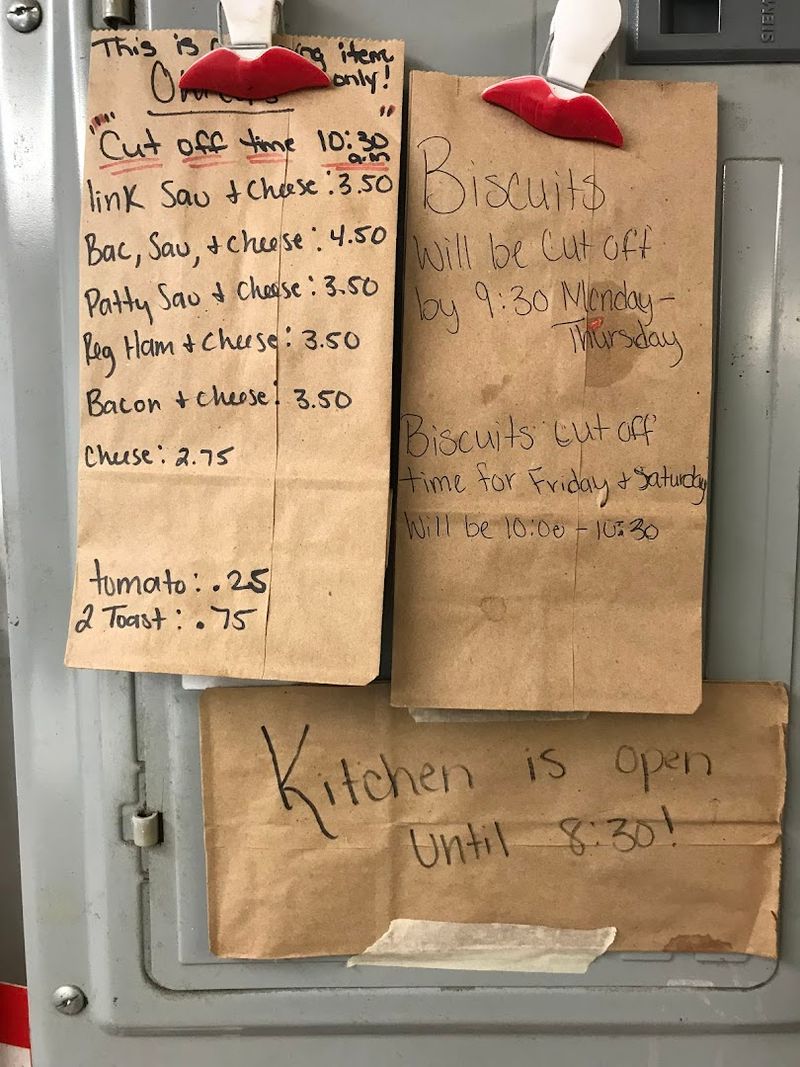 This is ing item
only!
"Cut off time 10:30"
a.m
link Sau + Cheese: 3.50
Bac, Sau, + cheese: 4.50
Patty Sau + Cheese: 3.50
Reg Ham + Cheese: 3.50
Bacon + cheese: 3.50
Cheese: 2.75
tomato: .25
2 Toast: .75
Biscuits
Will be Cut off
by 9:30 Monday-
Thursday
Biscuits Cut off
time for Friday + Saturday
Will be 10:00 - 10:30
Kitchen is open
until 8:30!